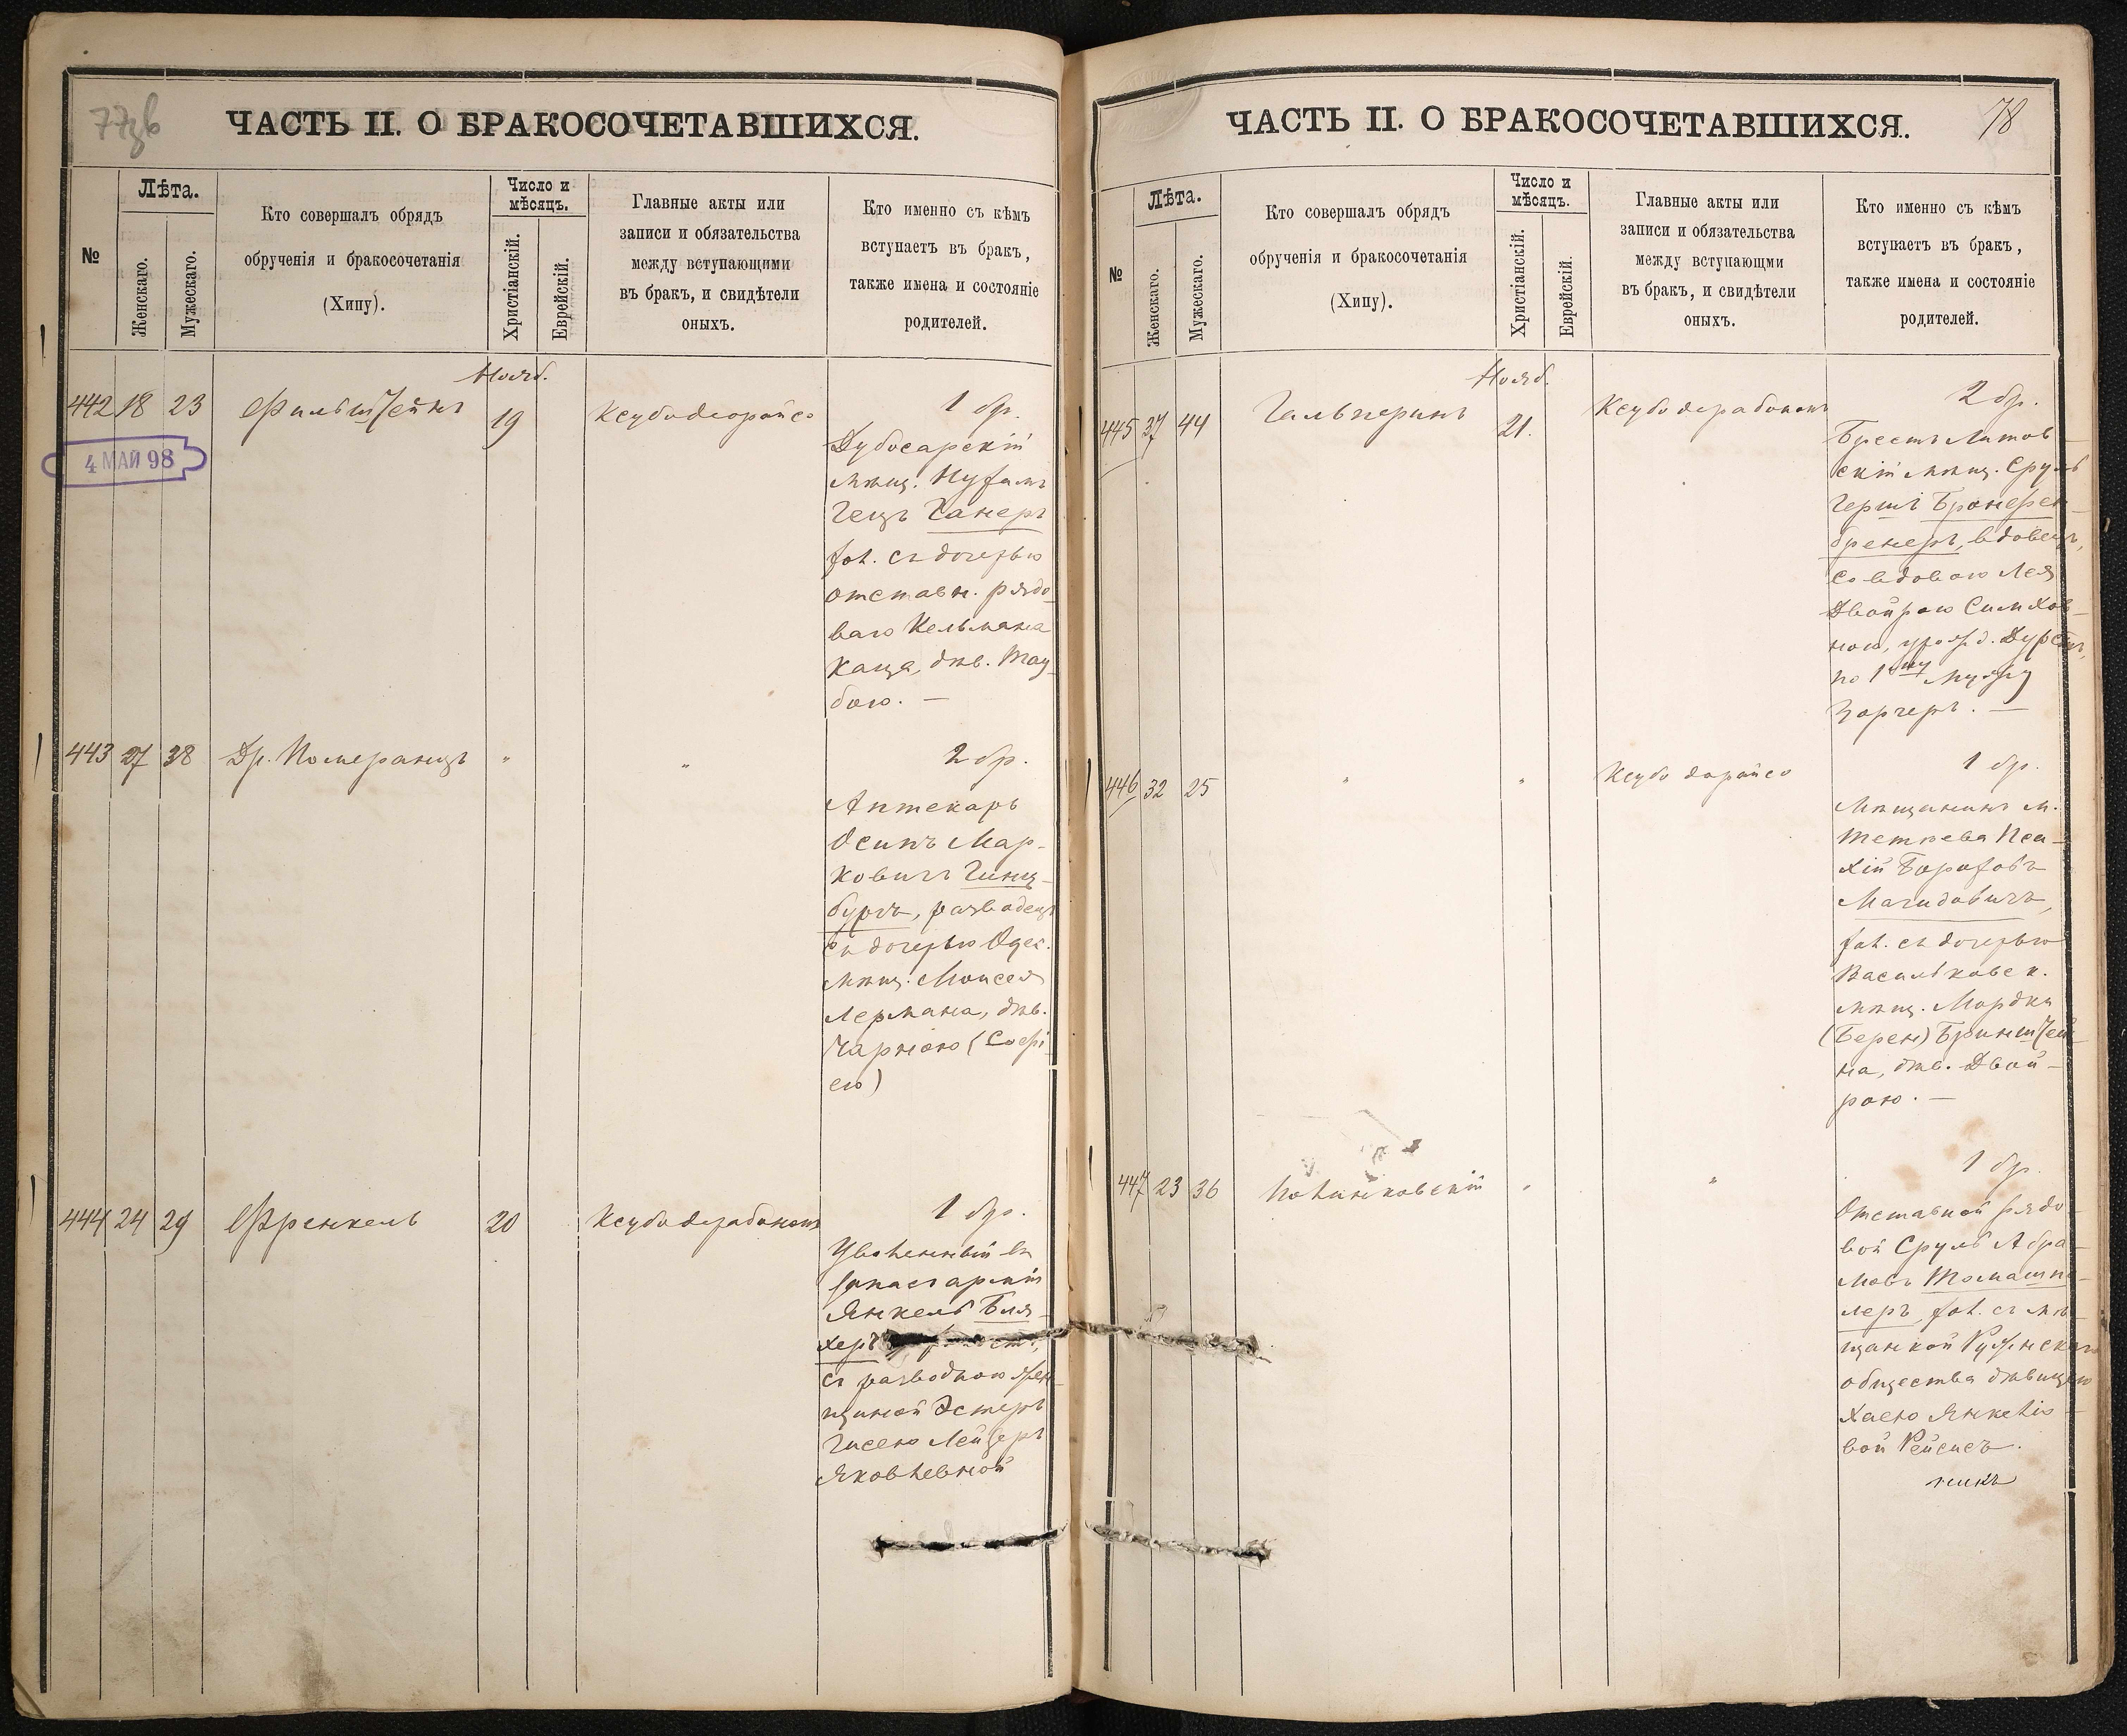 77зв
ЧАСТЬ II. О БРАКОСОЧЕТАВШИХСЯ.
№
Лѣта.
Женскаго.
Мужескаго.
Кто совершалъ обрядъ
обрученія и бракосочетанія
(Хипу).
Число и
мѣсяцъ.
Христіанскій.
Еврейскій.
Главные акты или
записи и обязательства
между вступающими
въ бракъ, и свидѣтели
оныхъ.
Кто именно съ кѣмъ
вступаетъ въ бракъ,
также имена и состояніе
родителей.
Нояб.
442 18 23 Фильштейнъ 19 Ксубодеорайсо 1 бр.
4 МАЙ 98
Дубосарскій
мѣщ.
Гецъ Ганеръ
хол. съ дочерью
отставн. рядо-
ваго Кельмана
Каца, дѣв. Тау-
бою. —
443 27 38 Др. Померанцъ " " 2 бр.
Аптекарь
Осипъ Мар-
ковичъ Гинц-
бургъ, разводецъ
съ дочерью Одес.
мѣщ. Моисея
Лермана, дѣв.
Чарною (Софі-
ею)
444 24 29 Френкель 20 Ксубодерабонон 1 бр.
Уволенный въ
запас армій
Янкель Бля-
херъ
съ разводною жен-
щиной Эстеръ
Гисею Лейзеръ
Яковлевной
78
ЧАСТЬ II. О БРАКОСОЧЕТАВШИХСЯ.
№
Лѣта.
Женскаго.
Мужескаго.
Кто совершалъ обрядъ
обрученія и бракосочетанія
(Хипу).
Число и
мѣсяцъ.
Христіанскій.
Еврейскій.
Главные акты или
записи и обязательства
между вступающми
въ бракъ, и свидѣтели
оныхъ.
Кто именно съ кѣмъ
вступаетъ въ бракъ,
также имена и состояніе
родителей.
Нояб.
445 37 44 Гальперинъ 21. Ксубодерабонон 2 бр.
Брестъ-Литов-
скій мѣщ. Сруль
Гершъ Бронфен-
бренеръ, вдовецъ,
со вдовою Лея
Двойрою Симхов-
ною, урожд.
по 1ому мужу
Зоргеръ. —
446 32 25 " " Ксубо дорайсо 1 бр.
Мѣщанинъ м.
Тетіева Пса-
хій Боруховъ
Магидовичъ,
хол. съ дочерью
Васильковск.
мѣщ. Мордки
(Берен) Бринштей-
на, дѣв. Двой-
рою. —
447 23 36 Полинковскій " " 1 бр.
Отставной рядо-
вой Сруль Абра-
мовъ Томашпо-
леръ, хол. съ мѣ-
щанкой Ружинскаго
общества дѣвицею
Хаею Янкеліо-
вой Рейсисъ.
никъ